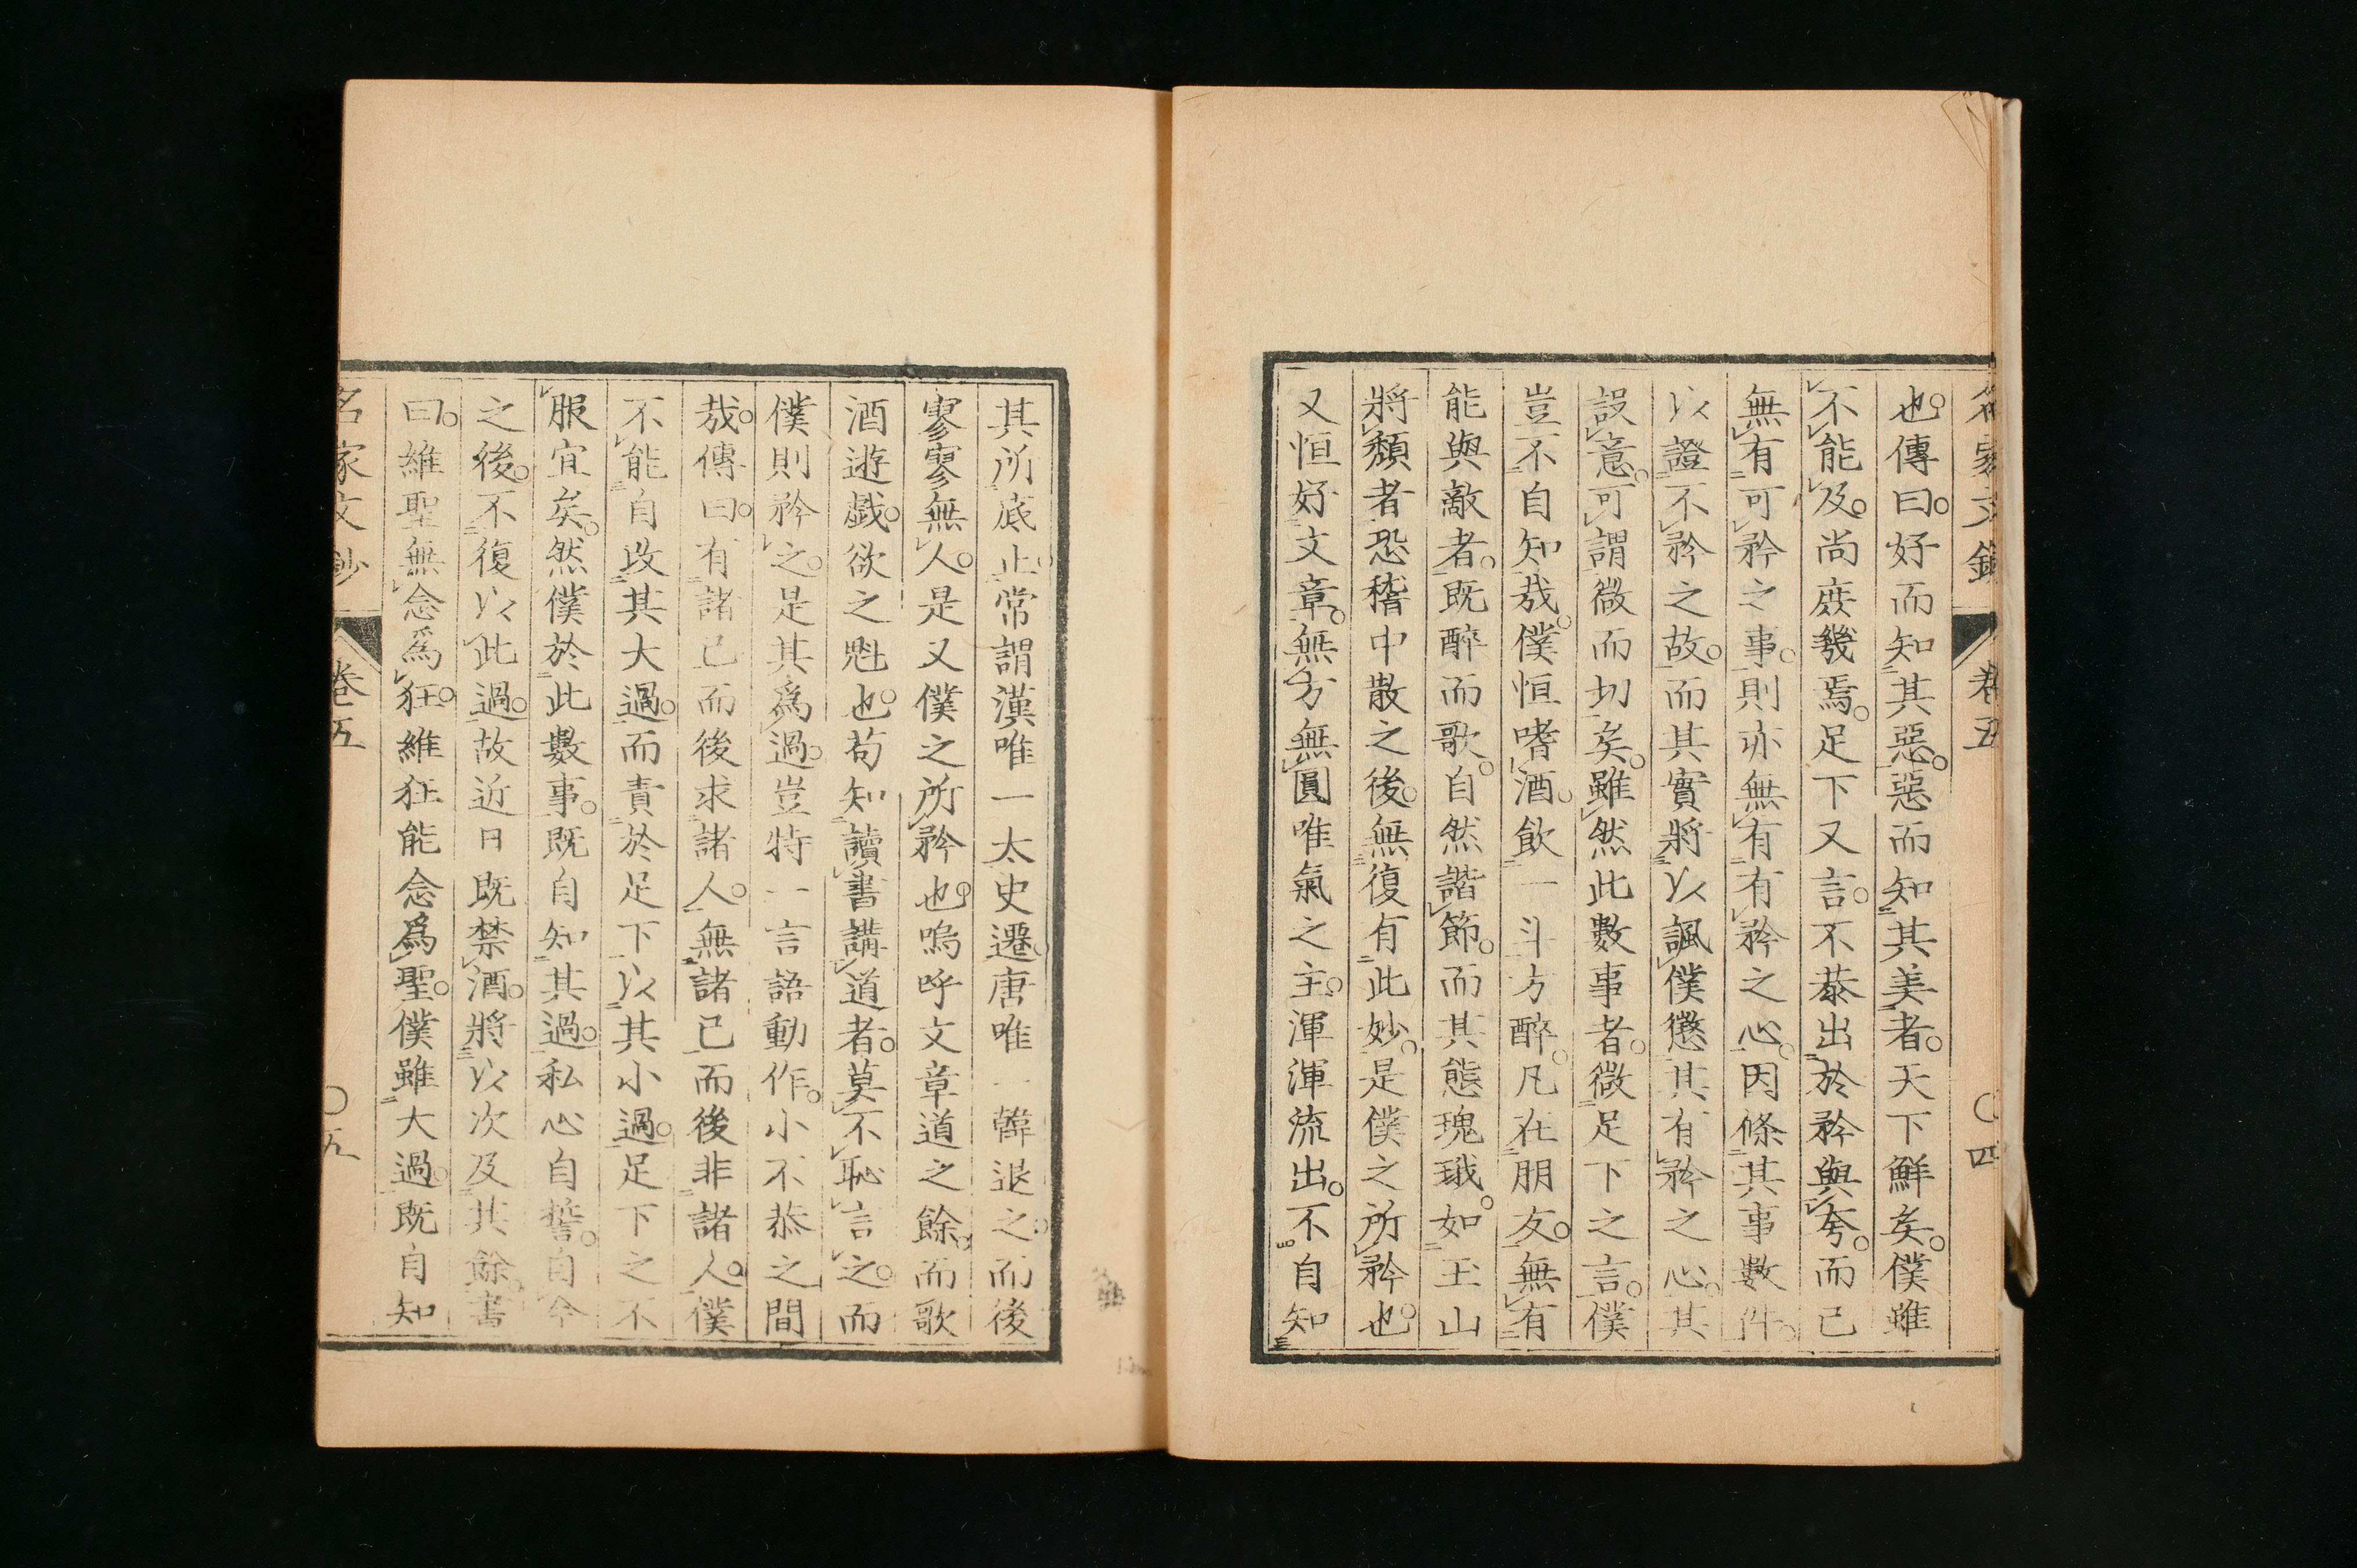 名家文鈔 卷五 〇四
也。傳曰。好而知其惡。惡而知其美者。天下鮮矣。僕雖
不能及。尚庶幾焉。足下又言。不恭出於矜與夸。而已
無有可矜之事。則亦無有有矜之心。因條其事數件。
以證不矜之故。而其實將以諷僕懲其有矜之心。其
設意。可謂微而切矣。雖然此數事者。微足下之言。僕
豈不自知哉。僕恒嗜酒。飲一斗方醉。凡在朋友。無有
能與敵者。既醉而歌。自然諧節。而其態瑰珴。如玉山
將頹者恐嵇中散之後。無復有此妙。是僕之所矜也。
又恒好文章。無方無圓唯氣之主。渾渾流出。不自知
其所底止。常謂漢唯一太史遷。唐唯一韓退之。而後
寥寥無人。是又僕之所矜也。嗚呼文章道之餘。而歌
酒遊戲。欲之魁也。苟知讀書講道者。莫不恥言之。而
僕則矜之。是其爲過。豈特一言語動作。小不恭之間
哉。傳曰。有諸己而後求諸人。無諸己而後非諸人。僕
不能自改其大過。而責於足下以其小過。足下之不
服宜矣。然僕於此數事。既自知其過。私心自誓。自今
之後。不復以此過。故近日既禁酒。將以次及其餘。書
曰。維聖無念爲狂。維狂能念爲聖。僕雖大過。既自知
名家文鈔 卷五 〇五